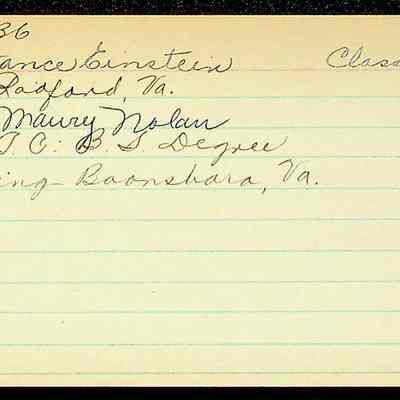 36
ance Einstein Class
Radford, Va.
Maury Nolan
T C: B S Degree
ing - Boonsboro, Va.